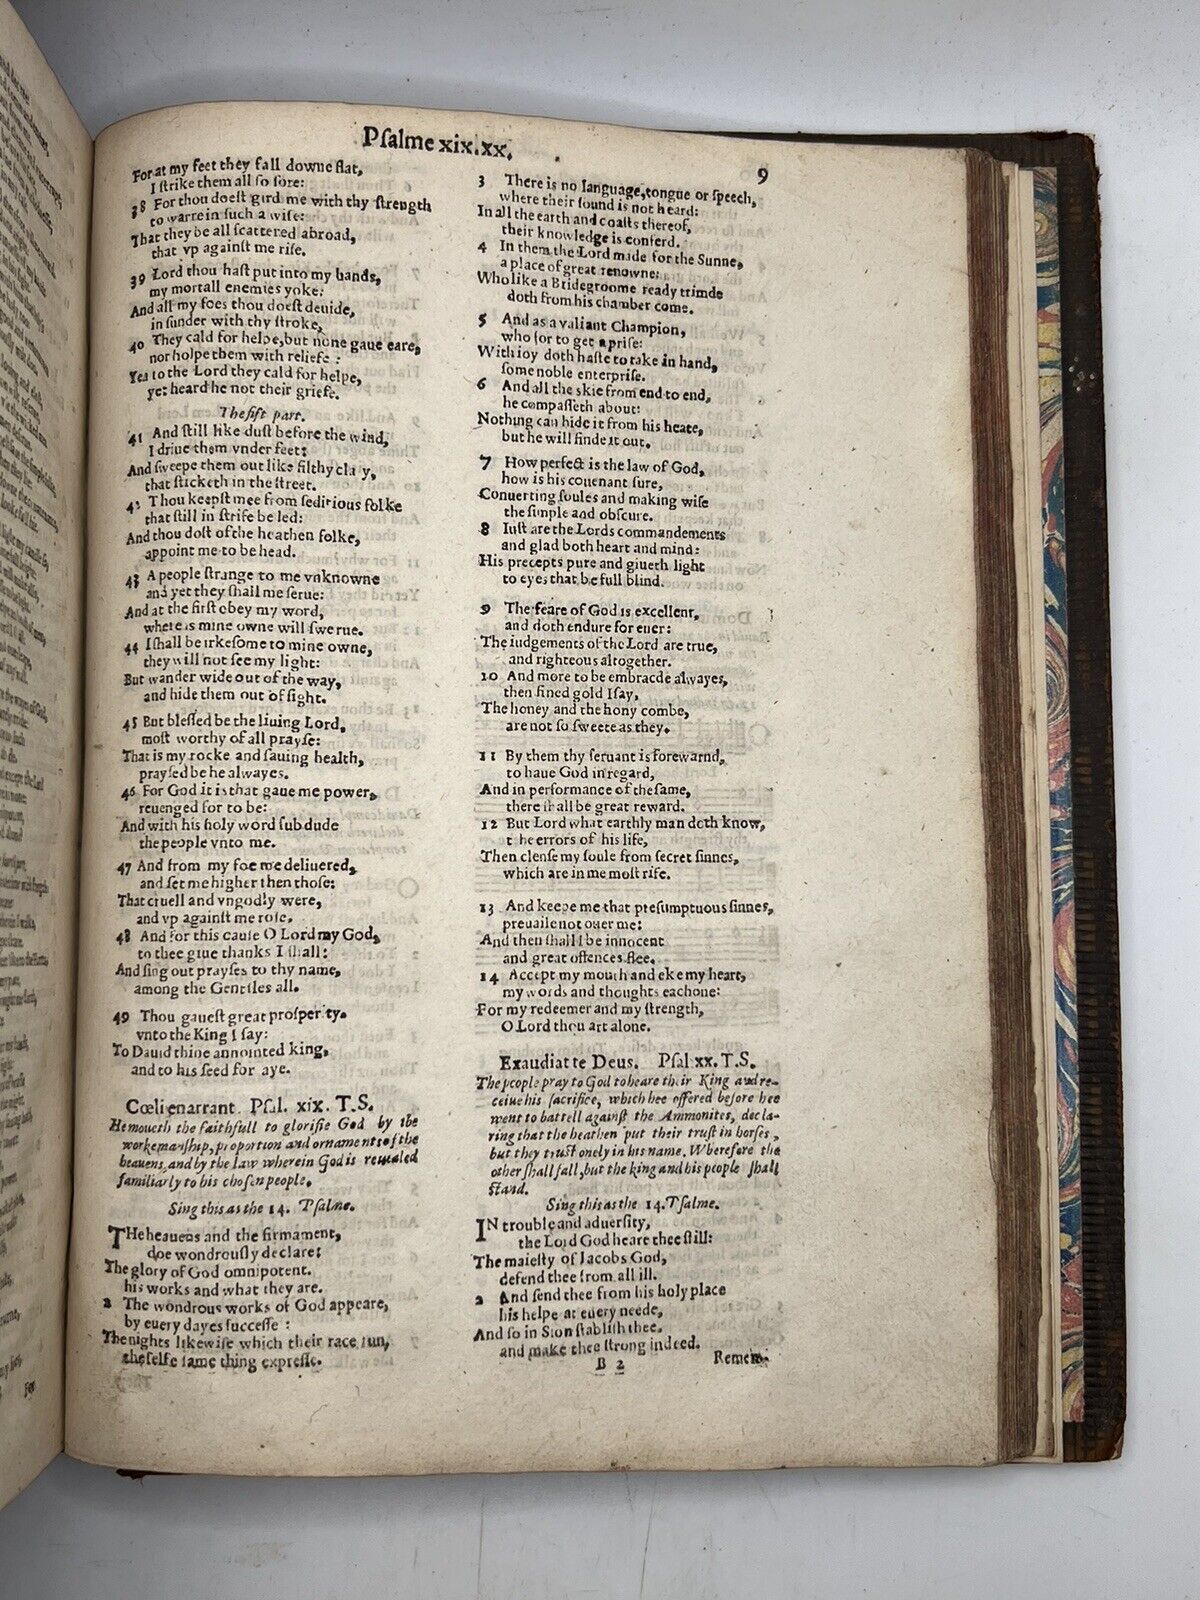 Pſalme xix.xx.
9
For at my feet they fall downe flat,
I ſtrike them all ſo ſore:
38 For thou doeſt gird me with thy ſtrength
to warre in ſuch a wiſe:
That they be all ſcattered abroad,
that vp againſt me riſe.
39 Lord thou haſt put into my hands,
my mortall enemies yoke:
And all my foes thou doeſt deuide,
in ſunder with thy ſtroke,
40 They cald for helpe, but none gaue eare,
nor holpe them with reliefe:
Yea to the Lord they cald for helpe,
yet heard he not their griefe.
The fift part.
41 And ſtill like duſt before the wind,
I driue them vnder feet:
And ſweepe them out like filthy clay,
that ſticketh in the ſtreet.
42 Thou keepſt mee from ſeditious folke
that ſtill in ſtrife be led:
And thou doſt of the heathen folke,
appoint me to be head.
43 A people ſtrange to me vnknowne
and yet they ſhall me ſerue:
And at the firſt obey my word,
where as mine owne will ſwerue.
44 I ſhall be irkeſome to mine owne,
they will not ſee my light:
But wander wide out of the way,
and hide them out of ſight.
45 But bleſſed be the liuing Lord,
moſt worthy of all prayſe:
That is my rocke and ſauing health,
prayſed be he alwayes.
46 For God it is that gaue me power,
reuenged for to be:
And with his holy word ſubdude
the people vnto me.
47 And from my foe me deliuered,
and ſet me higher then thoſe:
That cruell and vngodly were,
and vp againſt me roſe.
48 And for this cauſe O Lord my God,
to thee giue thanks I ſhall:
And ſing out prayſes to thy name,
among the Gentiles all.
49 Thou gaueſt great proſperity.
vnto the King I ſay:
To Dauid thine annointed king,
and to his ſeed for aye.
Cœli enarrant. Pſal. xix. T.S.
He moueth the faithfull to glorifie God by the
workemanſhip, proportion and ornaments of the
heauens, and by the law wherein God is reuealed
familiarly to his choſen people.
Sing this as the 14. Pſalme.
THe heauens and the firmament,
doe wondrouſly declare:
The glory of God omnipotent.
his works and what they are.
2 The wondrous works of God appeare,
by euery dayes ſucceſſe:
The nights likewiſe which their race run,
the ſelfe ſame thing expreſſe.
3 There is no language, tongue or ſpeech,
where their ſound is not heard:
In all the earth and coaſts thereof,
their knowledge is conferd.
4 In them the Lord made for the Sunne,
a place of great renowne:
Who like a Bridegroome ready trimde
doth from his chamber come.
5 And as a valiant Champion,
who for to get a priſe:
With ioy doth haſte to take in hand,
ſome noble enterpriſe.
6 And all the skie from end to end,
he compaſſeth about:
Nothing can hide it from his heate,
but he will finde it out.
7 How perfect is the law of God,
how is his couenant ſure,
Conuerting ſoules and making wiſe
the ſimple and obſcure.
8 Iuſt are the Lords commandements
and glad both heart and mind:
His precepts pure and giueth light
to eyes that be full blind.
9 The feare of God is excellent,
and doth endure for euer:
The iudgements of the Lord are true,
and righteous altogether.
10 And more to be embracde alwayes,
then fined gold I ſay,
The honey and the hony combe,
are not ſo ſweete as they.
11 By them thy ſeruant is forewarnd,
to haue God in regard,
And in performance of the ſame,
there ſhall be great reward.
12 But Lord what earthly man doth know,
the errors of his life,
Then clenſe my ſoule from ſecret ſinnes,
which are in me moſt rife.
13 And keepe me that preſumptuous ſinnes,
preuaile not ouer me:
And then ſhall I be innocent
and great offences flee.
14 Accept my mouth and eke my heart,
my words and thoughts eachone:
For my redeemer and my ſtrength,
O Lord thou art alone.
Exaudiat te Deus. Pſal xx. T.S.
The people pray to God to heare their King and re-
ceiue his ſacrifice, which hee offered before hee
went to battell againſt the Ammonites, decla-
ring that the heathen put their truſt in horſes,
but they truſt onely in his name. Wherefore the
other ſhall fall, but the king and his people ſhall
ſtand.
Sing this as the 14. Pſalme.
IN trouble and aduerſity,
the Lord God heare thee ſtill:
The maieſty of Iacobs God,
defend thee from all ill.
2 And ſend thee from his holy place
his helpe at euery neede,
And ſo in Sion ſtabliſh thee.
and make thee ſtrong indeed.
B 2
Remem-